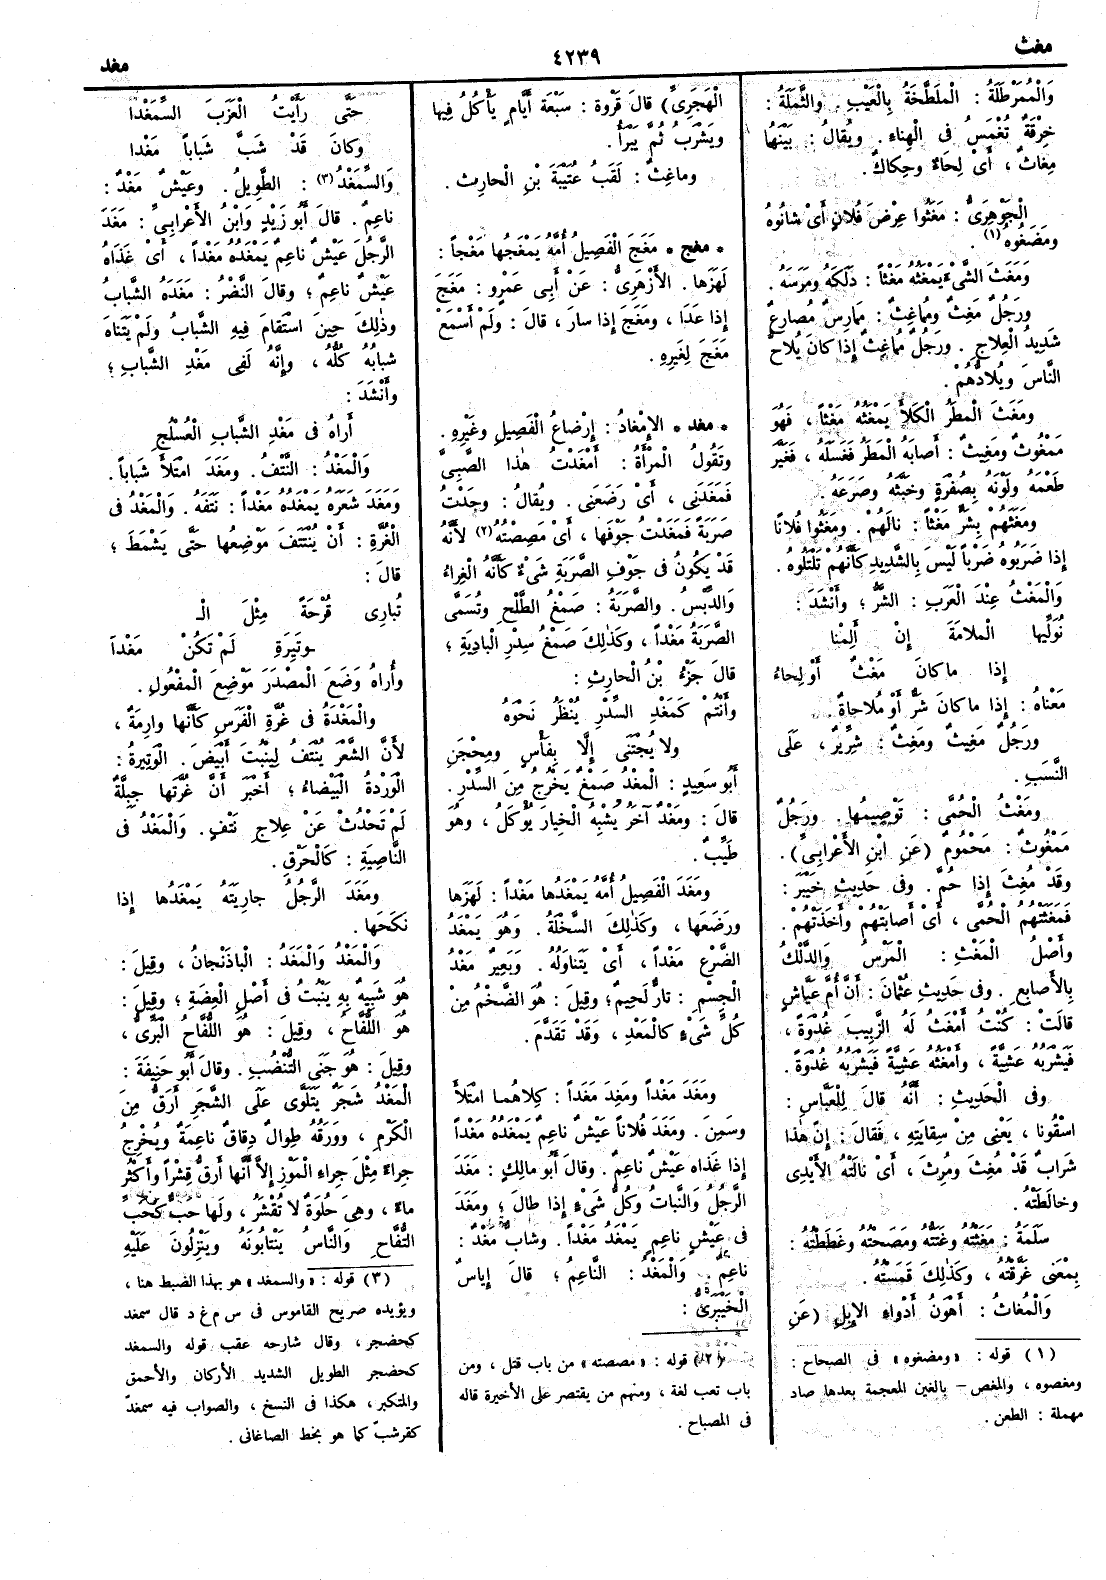 مغث
٤٢٣٩
مغد
وَالْمُمَرْطَلَةُ : الْمُلَطَّخَةُ بِالْعَيْبِ . وَالثَّمَلَةُ :
خِرْقَةٌ تُغْمَسُ فِى الْهِناءِ . وَيُقالُ : بَيْنَهُما
مِغاثٌ ، أَىْ لِحَاءٌ وَحِكاكٌ .
الْجَوْهَرِىُّ : مَغَثُوا عِرْضَ فُلانٍ أَىْ شانُوهُ
وَمَضَغُوهُ (١) .
وَمَغَثَ الشَّىْءَ يَمْغَثُهُ مَغْثاً : دَلَكَهُ وَمَرَسَهُ .
وَرَجُلٌ مَغِثٌ وَمُماغِثٌ : مُمَارِسٌ مُصارِعٌ
شَدِيدُ الْعِلاجِ . وَرَجُلٌ مُماغِثٌ إِذا كانَ يُلاحُّ
النَّاسَ وَيُلادُّهُمْ .
وَمَغَثَ الْمَطَرُ الْكَلَأَ يَمْغَثُهُ مَغْثاً ، فَهُوَ
مَمْغُوثٌ وَمَغِيثٌ : أَصابَهُ الْمَطَرُ فَغَسَلَهُ ، فَغَيَّرَ
طَعْمَهُ وَلَوْنَهُ بِصُفْرَةٍ وَخَبَّثَهُ وَصَرَعَهُ .
وَمَغَثَهُمْ بِشَرٍّ مَغْثاً : نالَهُمْ . وَمَغَثُوا فُلاناً
إِذا ضَرَبُوهُ ضَرْباً لَيْسَ بِالشَّدِيدِ كَأَنَّهُمْ تَلْتَلُوهُ .
وَالْمَغْثُ عِنْدَ الْعَرَبِ : الشَّرُّ ؛ وَأَنْشَدَ :
نُوَلِّيها الْمَلامَةَ إِنْ أَلِمْنا
إِذا ما كانَ مَغْثٌ أَوْ لِحاءُ
مَعْناهُ : إِذا ما كانَ شَرٌّ أَوْ مُلاحاةٌ .
وَرَجُلٌ مَغِيثٌ وَمَغِثٌ : شِرِّيرٌ ، عَلَى
النَّسَبِ .
وَمَغْثُ الْحُمَّى : تَوْصِيمُها . وَرَجُلٌ
مَمْغُوثٌ : مَحْمُومٌ (عَنِ ابْنِ الْأَعْرابِىِّ) .
وَقَدْ مُغِثَ إِذا حُمَّ . وَفِى حَدِيثِ خَيْبَرَ :
فَمَغَثَتْهُمُ الْحُمَّى ، أَىْ أَصابَتْهُمْ وَأَخَذَتْهُمْ .
وَأَصْلُ الْمَغْثِ : الْمَرْسُ وَالدَّلْكُ
بِالْأَصابِعِ . وَفِى حَدِيثِ عُثْمانَ : أَنَّ أُمَّ عَيَّاشٍ
قالَتْ : كُنْتُ أَمْغَثُ لَهُ الزَّبِيبَ غُدْوَةً ،
فَيَشْرَبُهُ عَشِيَّةً ، وَأَمْغَثُهُ عَشِيَّةً فَيَشْرَبُهُ غُدْوَةً .
وَفِى الْحَدِيثِ : أَنَّهُ قالَ لِلْعَبَّاسِ :
اسْقُونا ، يَعْنِى مِنْ سِقايَتِهِ ، فَقالَ : إِنَّ هٰذا
شَرابٌ قَدْ مُغِثَ وَمُرِثَ ، أَىْ نالَتْهُ الْأَيْدِى
وَخالَطَتْهُ .
سَلَمَةُ : مَغَثْتُهُ وَغَتَتُّهُ وَمَصَحْتُهُ وَغَطَطْتُهُ :
بِمَعْنَى غَرَّقْتُهُ ، وَكَذٰلِكَ قَمَسْتُهُ .
وَالْمُغاثُ : أَهْوَنُ أَدْواءِ الْإِبِلِ (عَنِ
(١) قوله : «ومضغوه» فى الصحاح :
ومغصوه ، والمغص – بالغين المعجمة بعدها صاد
مهملة : الطعن .
الْهَجَرِىِّ) قالَ قَرْوَة : سَبْعَةَ أَيَّامٍ يَأْكُلُ فِيها
وَيَشْرَبُ ثُمَّ يَبْرَأُ .
وَماغِثٌ : لَقَبُ عُتَيْبَةَ بْنِ الْحارِثِ .
• مغج • مَغَجَ الْفَصِيلُ أُمَّهُ يَمْغَجُها مَغْجاً :
لَهَزَها . الْأَزْهَرِىُّ : عَنْ أَبِى عَمْرٍو : مَغَجَ
إِذا عَدَا ، وَمَغَجَ إِذا سارَ ، قالَ : وَلَمْ أَسْمَعْ
مَغَجَ لِغَيْرِهِ .
• مغد • الْإِمْغادُ : إِرْضاعُ الْفَصِيلِ وَغَيْرِهِ .
وَتَقُولُ الْمَرْأَةُ : أَمْغَدْتُ هٰذا الصَّبِىَّ
فَمَغَدَنِى ، أَىْ رَضَعَنِى . وَيُقالُ : وَجَدْتُ
صَرَبَةً فَمَغَدْتُ جَوْفَها ، أَىْ مَصِصْتُهُ (٢) لأَنَّهُ
قَدْ يَكُونُ فِى جَوْفِ الصَّرَبَةِ شَىْءٌ كَأَنَّهُ الْغِراءُ
وَالدِّبْسُ . وَالصَّرَبَةُ : صَمْغُ الطَّلْحِ وَتُسَمَّى
الصَّرَبَةُ مَغْداً ، وَكَذٰلِكَ صَمْغُ سِدْرِ الْبادِيَةِ ؛
قالَ جَزْءُ بْنُ الْحارِثِ :
وَأَنْتُمْ كَمَغْدِ السِّدْرِ يُنْظَرُ نَحْوَهُ
وَلا يُجْتَنَى إِلَّا بِفَأْسٍ وَمِحْجَنِ
أَبُو سَعِيدٍ : الْمَغْدُ صَمْغٌ يَخْرُجُ مِنَ السِّدْرِ .
قالَ : وَمَغْدٌ آخَرُ يُشْبِهُ الْخِيارَ يُؤْكَلُ ، وَهُوَ
طَيِّبٌ .
وَمَغَدَ الْفَصِيلُ أُمَّهُ يَمْغَدُها مَغْداً : لَهَزَها
وَرَضَعَها ، وَكَذٰلِكَ السَّخْلَةُ . وَهُوَ يَمْغَدُ
الضَّرْعَ مَغْداً ، أَىْ يَتَناوَلُهُ . وَبَعِيرٌ مَغْدُ
الْجِسْمِ : تارٌّ لَحِيمٌ ؛ وَقِيلَ : هُوَ الضَّخْمُ مِنْ
كُلِّ شَىْءٍ كَالْمَعْدِ ، وَقَدْ تَقَدَّمَ .
وَمَغَدَ مَغْداً وَمَغِدَ مَغَداً : كِلاهُما امْتَلَأَ
وَسَمِنَ . وَمَغَدَ فُلاناً عَيْشٌ ناعِمٌ يَمْغَدُهُ مَغْداً
إِذا غَذَاه عَيْشٌ ناعِمٌ . وَقالَ أَبُو مالِكٍ : مَغَدَ
الرَّجُلُ وَالنَّباتُ وَكُلُّ شَىْءٍ إِذا طالَ ؛ وَمَغَدَ
فِى عَيْشٍ ناعِمٍ يَمْغَدُ مَغْداً . وَشابٌّ مَغْدٌ :
ناعِمٌ . وَالْمَغْدُ : النَّاعِمُ ؛ قالَ إِياسٌ
الْخَيْبَرِىُّ :
(٢) قوله : «مصصته» من باب قتل ، ومن
باب تعب لغة ، ومنهم من يقتصر على الأخيرة قاله
فى المصباح .
حَتَّى رَأَيْتُ الْعَزَبَ السِّمَغْدا
وَكانَ قَدْ شَبَّ شَباباً مَغْدا
وَالسِّمَغْدُ (٣) : الطَّوِيلُ . وَعَيْشٌ مَغْدٌ :
ناعِمٌ . قالَ أَبُو زَيْدٍ وَابْنُ الْأَعْرابِىِّ : مَغَدَ
الرَّجُلَ عَيْشٌ ناعِمٌ يَمْغَدُهُ مَغْداً ، أَىْ غَذَاهُ
عَيْشٌ ناعِمٌ ؛ وَقالَ النَّضْرُ : مَغَدَهُ الشَّبابُ
وَذٰلِكَ حِينَ اسْتَقامَ فِيهِ الشَّبابُ وَلَمْ يَتَناهَ
شَبابُهُ كُلُّهُ ، وَإِنَّهُ لَفِى مَغْدِ الشَّبابِ ؛
وَأَنْشَدَ :
أَراهُ فِى مَغْدِ الشَّبابِ الْعُسْلُجِ
وَالْمَغْدُ : النَّتْفُ . وَمَغَدَ امْتَلَأَ شَباباً .
وَمَغَدَ شَعَرَهُ يَمْغَدُهُ مَغْداً : نَتَفَهُ . وَالْمَغْدُ فِى
الْغُرَّةِ : أَنْ يُنْتَتَفَ مَوْضِعُها حَتَّى يَشْمَطَ ؛
قالَ :
تُبارِى قُرْحَةً مِثْلَ الْـ
ـوَتِيرَةِ لَمْ تَكُنْ مَغْدا
وَأُراهُ وَضَعَ الْمَصْدَرَ مَوْضِعَ الْمَفْعُولِ .
وَالْمَغْدَةُ فِى غُرَّةِ الْفَرَسِ كَأَنَّها وارِمَةٌ ،
لأَنَّ الشَّعَرَ يُنْتَفُ لِيَنْبُتَ أَبْيَضَ . الْوَتِيرَةُ :
الْوَرْدَةُ الْبَيْضاءُ ؛ أَخْبَرَ أَنَّ غُرَّتَها جِبِلَّةٌ
لَمْ تَحْدُثْ عَنْ عِلاجِ نَتْفٍ . وَالْمَغْدُ فِى
النَّاصِيَةِ : كَالْحَرْقِ .
وَمَغَدَ الرَّجُلُ جارِيَتَهُ يَمْغَدُها إِذا
نَكَحَها .
وَالْمَغْدُ وَالْمَغَدُ : الْباذَنْجانُ ، وَقِيلَ :
هُوَ شَبِيهٌ بِهِ يَنْبُتُ فِى أَصْلِ الْعِضَةِ ؛ وَقِيلَ :
هُوَ اللُّفَّاحُ ، وَقِيلَ : هُوَ اللُّفَّاحُ الْبَرِّىُّ ،
وَقِيلَ : هُوَ جَنَى التُّنْضُبِ . وَقالَ أَبُو حَنِيفَةَ :
الْمَغْدُ شَجَرٌ يَتَلَوَّى عَلَى الشَّجَرِ أَرَقُّ مِنَ
الْكَرْمِ ، وَوَرَقُهُ طِوالٌ دِقاقٌ ناعِمَةٌ وَيُخْرِجُ
جِراءً مِثْلَ جِراءِ الْمَوْزِ إِلَّا أَنَّها أَرَقُّ قِشْراً وَأَكْثَرُ
ماءً ، وَهِىَ حُلْوَةٌ لا تُقْشَرُ ، وَلَها حَبٌّ كَحَبِّ
التُّفَّاحِ وَالنَّاسُ يَنْتابُونَهُ وَيَنْزِلُونَ عَلَيْهِ
(٣) قوله : «والسمغد» هو بهذا الضبط هنا ،
ويؤيده صريح القاموس فى س م غ د قال سمغد
كحضجر ، وقال شارحه عقب قوله والسمغد
كحضجر الطويل الشديد الأركان والأحمق
والمتكبر ، هكذا فى النسخ ، والصواب فيه سمغدّ
كقرشبّ كما هو بخط الصاغانى .